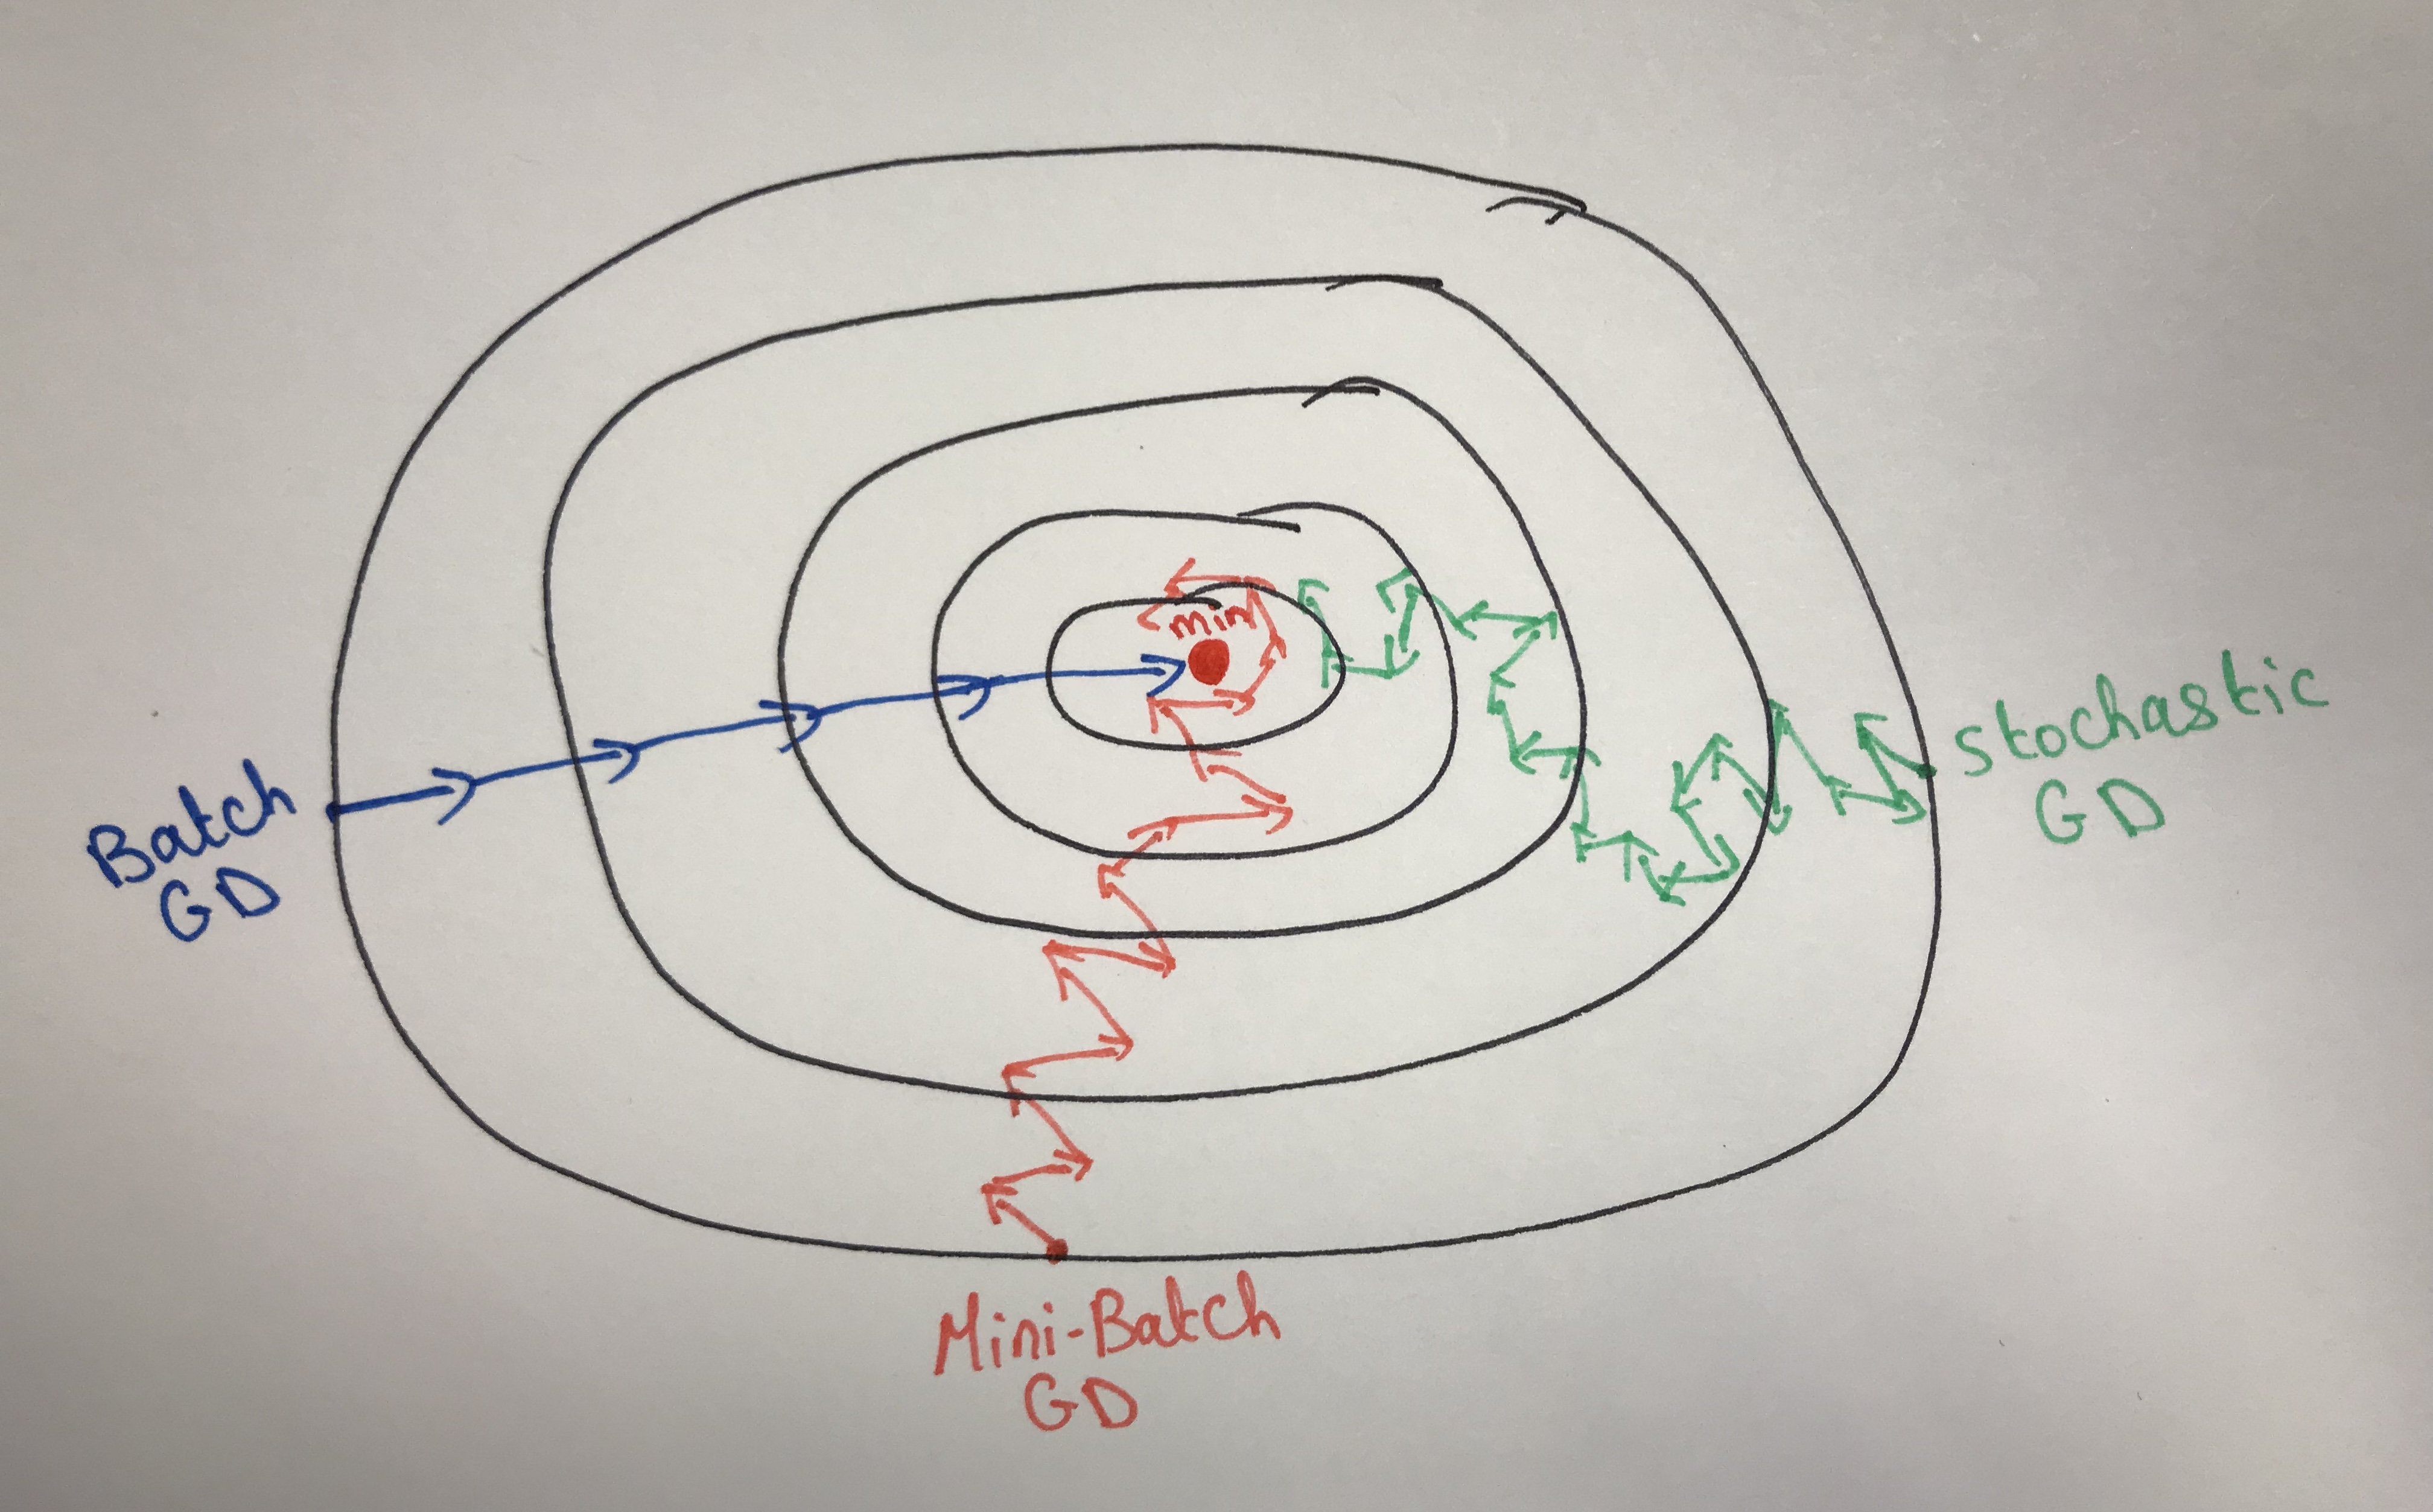 min
Batch
GD
stochastic
GD
Mini-Batch
GD